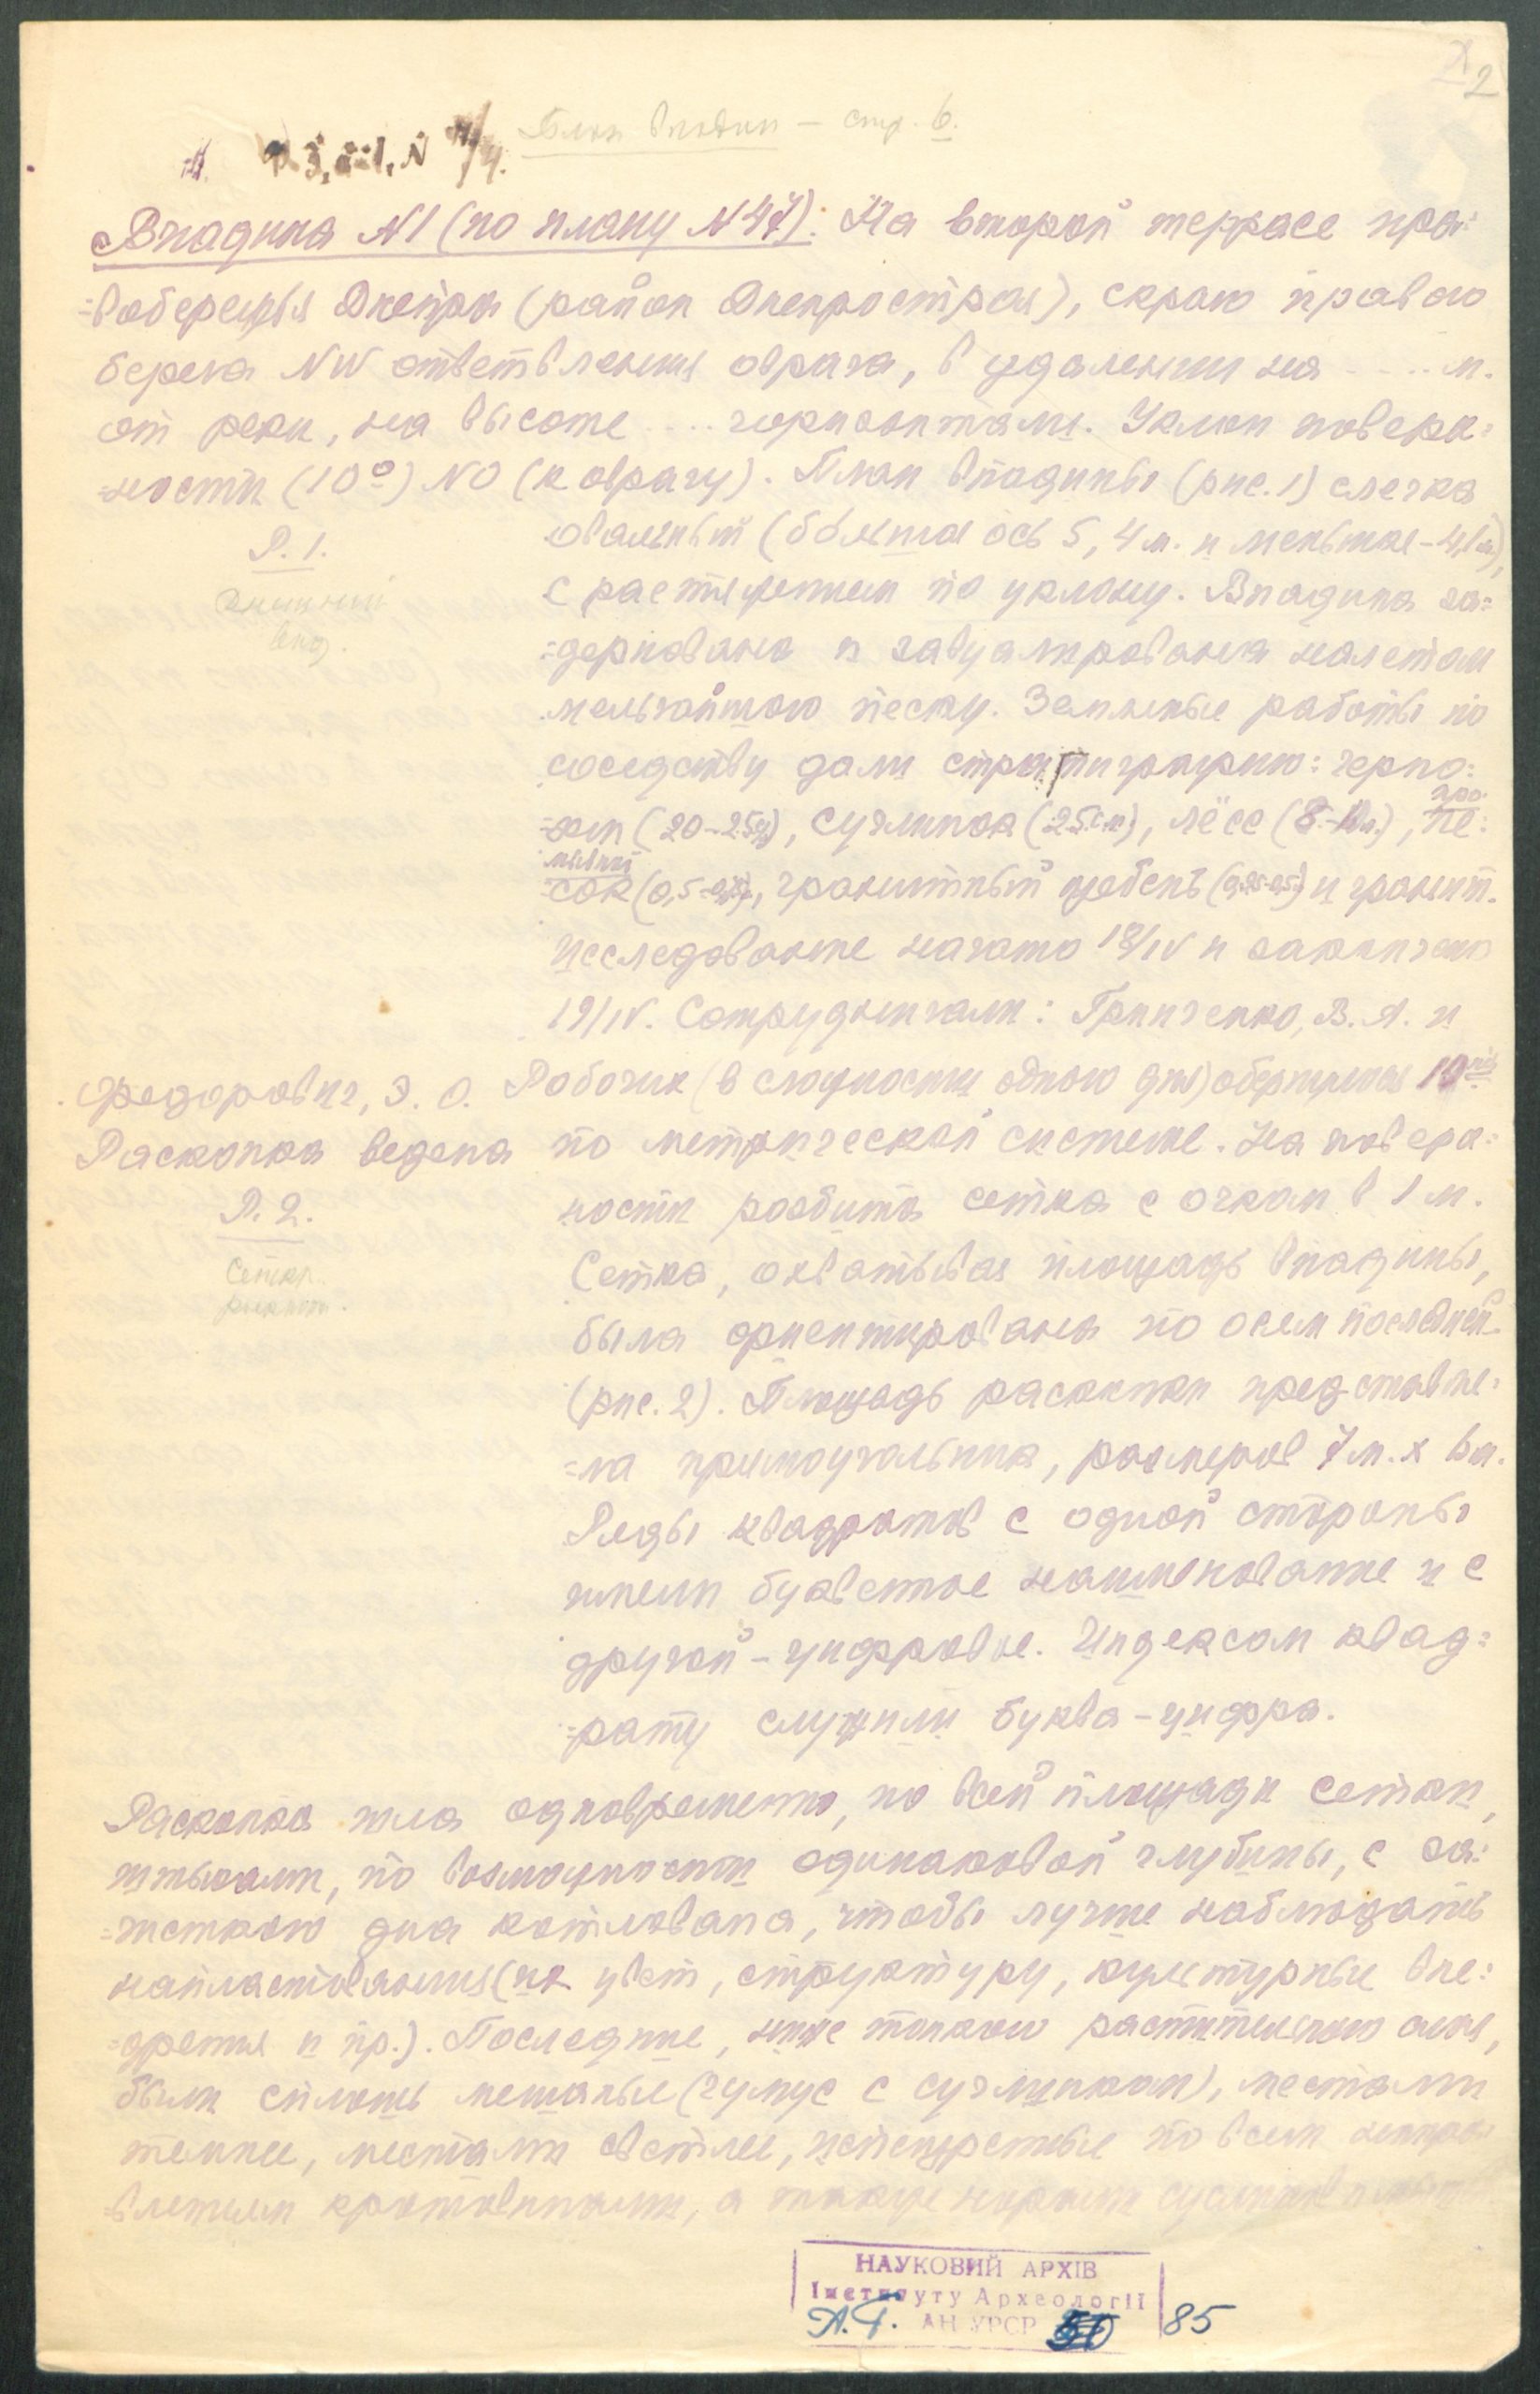 2
План впадин – стр. 6.
Впадина N1 (по плану N47). На второй террасе пра=
=вобережья Днепра (район Днепростроя), скраю правого
берега NW ответвления оврага, в удалении на .... м.
от реки, на высоте .... горизонтали. Уклон поверх=
=ности (10°) NO (к оврагу). План впадины (рис. 1) слегка
Р. 1.
внешний
вид.
овальный (большая ось 5,4 м. и меньшая –
с растяжением по уклону. Впадина за=
=дернована и завуалирована налетом
мельчайшего песку. Земляные работы по
соседству дали стратиграфию: черно=
=зем (20–25), суглинок (25 см), лёсс (8–10 м.), пе=
про=
мывной
=сок (0,5 гранитный щебень и гранит.
Исследование начато 18/IV и закончено
19/IV. Сотрудничали: Гринченко, В. А. и
Федорович, Э. О. Рабочих (в сложности одного дня) обернулось 10
Раскопка ведена по метрической системе. На поверх=
Р. 2.
Сетка
раскопа.
ности разбита сетка с очком в 1 м.
Сетка, охватывая площадь впадины,
была ориентирована по осям последней
(рис. 2). Площадь раскопки представля=
=ла прямоугольник, размеров 7 м. х 6 м.
Ряды квадратов с одной стороны
имели буквенное наименование и с
другой – цифровое. Индексом квад=
=рату служили буква–цифра.
Раскопка шла одновременно, по всей площади сетки,
штыками, по возможности одинаковой глубины, с за=
=чисткою дна котлована, чтобы лучше наблюдать
напластования (их цвет, структуру, культурные вне=
=дрения и пр.). Последние, ниже тонкого растительного слоя,
были сплошь мешаные (гумус с суглинком), местами
темнее, местами светлее, испещренные по всем направ=
=влениям кротовинами, а также норами сусликов
НАУКОВИЙ АРХІВ
Інституту Археології
АН УРСР
А.Г. 50 85